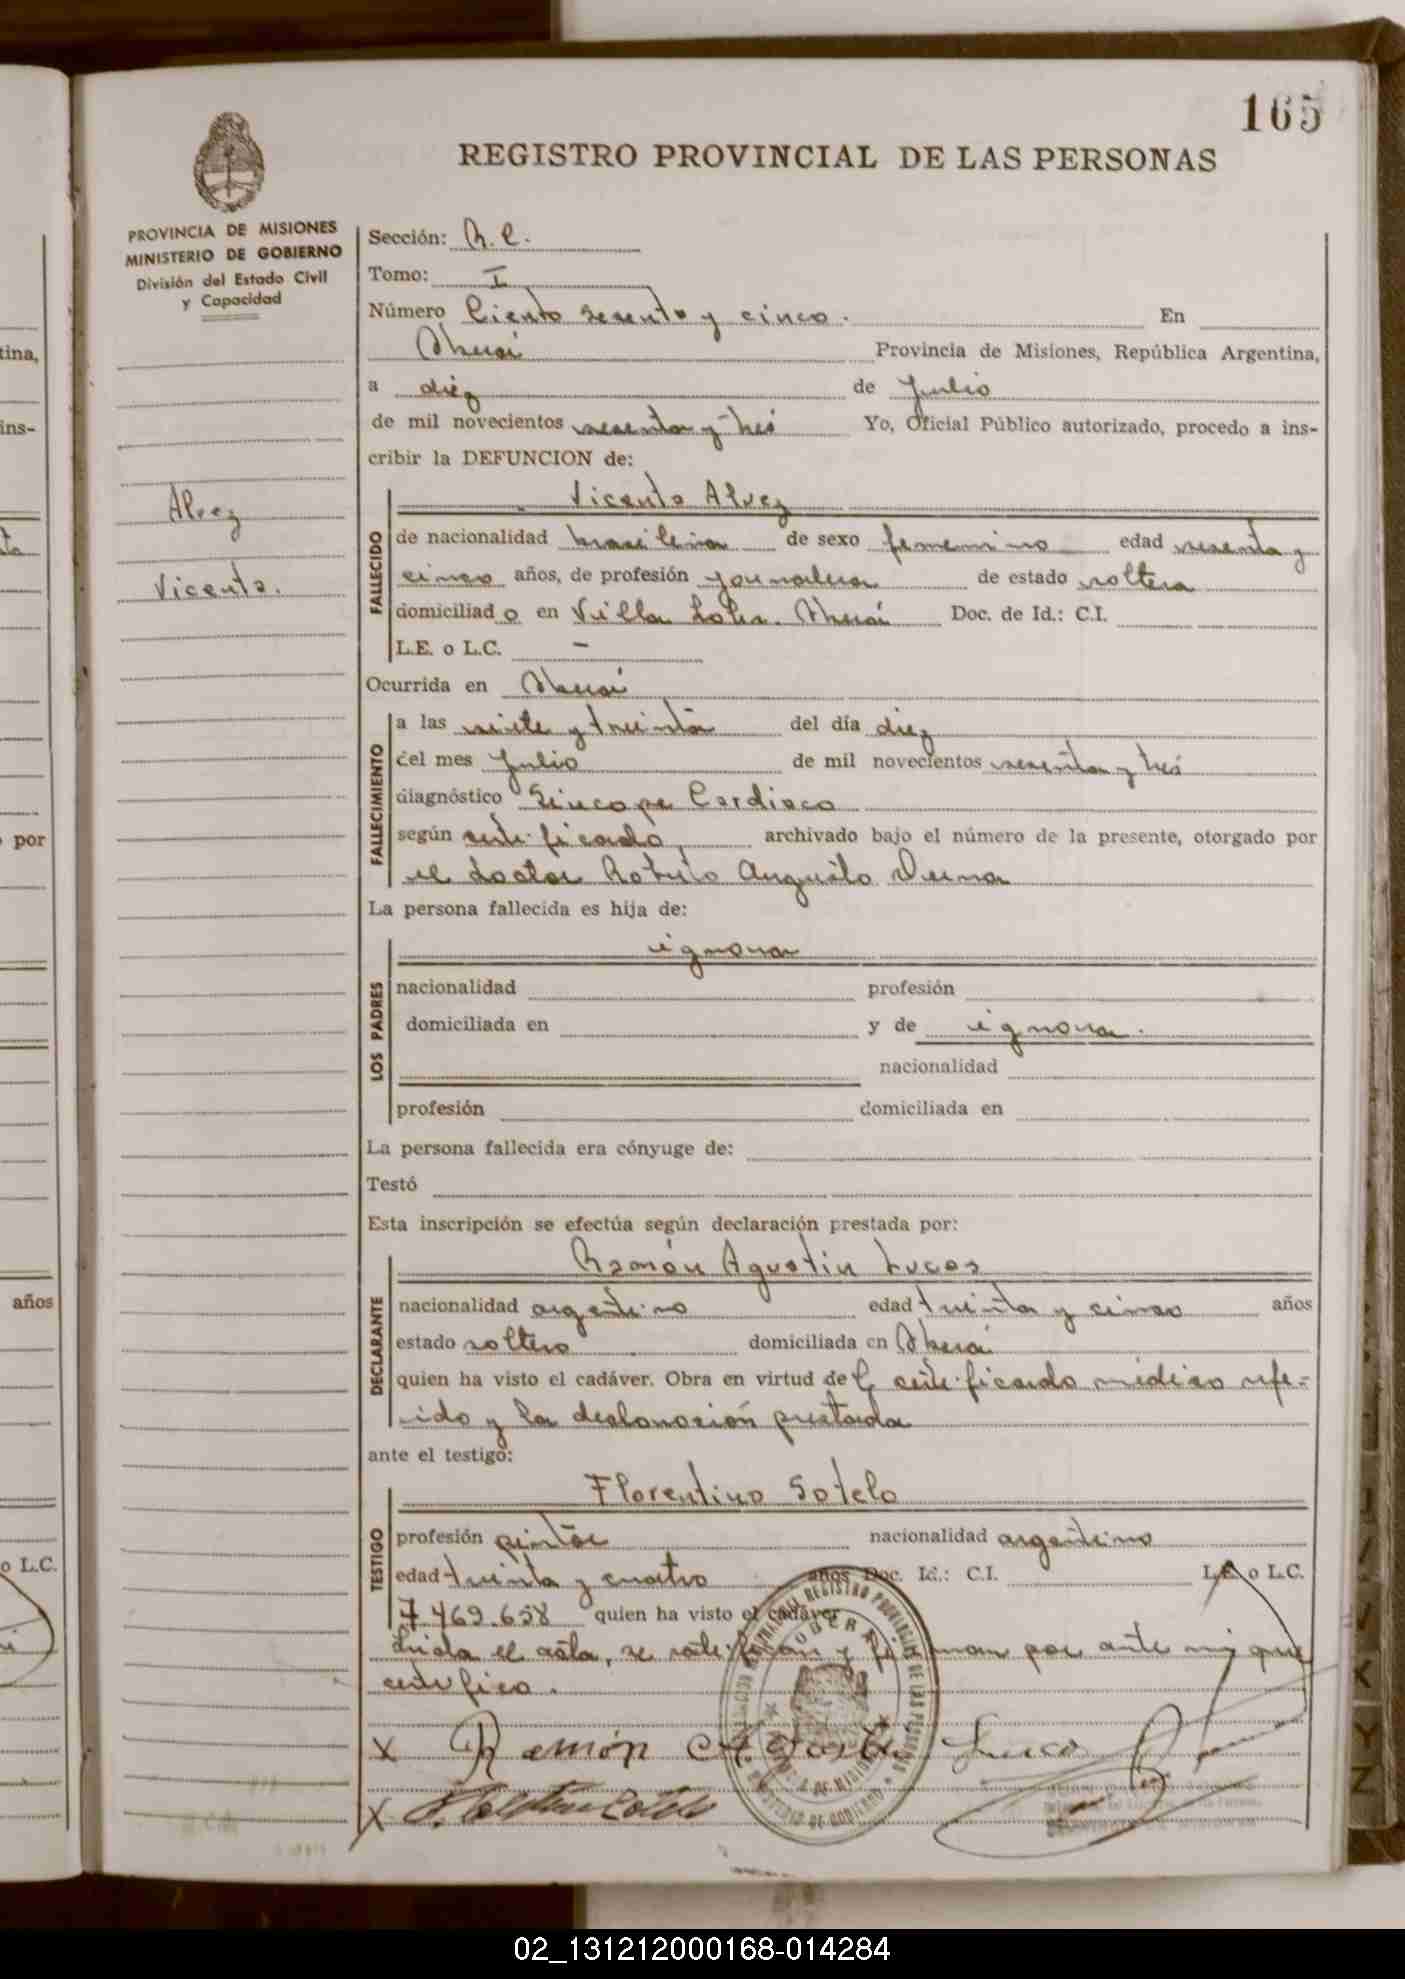 165
REGISTRO PROVINCIAL DE LAS PERSONAS
PROVINCIA DE MISIONES
MINISTERIO DE GOBIERNO
División del Estado Civil
y Capacidad
Alvez
Vicenta.
Sección: R. C.
Tomo: I
Número Ciento sesenta y cinco. En
Oberá Provincia de Misiones, República Argentina,
a diez de Julio
de mil novecientos sesenta y tres Yo, Oficial Público autorizado, procedo a ins-
cribir la DEFUNCION de:
Vicenta Alvez
FALLECIDO
de nacionalidad brasileña de sexo femenino edad sesenta y
cinco años, de profesión jornalera de estado soltera
domiciliado en Villa Oberá Doc. de Id.: C.I.
L.E. o L.C. -
Ocurrida en Oberá
FALLECIMIENTO
a las siete y treinta del día diez
del mes Julio de mil novecientos sesenta y tres
diagnóstico Síncope Cardíaco
según certificado, archivado bajo el número de la presente, otorgado por
el doctor Augusto
La persona fallecida es hija de:
LOS PADRES
ignora
nacionalidad profesión
domiciliada en y de ignora.
nacionalidad
profesión domiciliada en
La persona fallecida era cónyuge de:
Testó
Esta inscripción se efectúa según declaración prestada por:
DECLARANTE
Ramón Agustin Lucas
nacionalidad argentino edad treinta y cinco años
estado soltero domiciliada en Oberá
quien ha visto el cadáver. Obra en virtud del certificado médico refe-
rido y la declaración prestada
ante el testigo:
TESTIGO
Florentino Sotelo
profesión pintor nacionalidad argentino
edad treinta y cuatro años Doc. Id.: C.I. L.E. o L.C.
7.469.658 quien ha visto el cadáver
Leida el acta, se ratifican y firman por ante mi que
certifico.
x Ramón Agustin Lucas
x
tina,
ins-
por
años
o L.C.
02_131212000168-014284